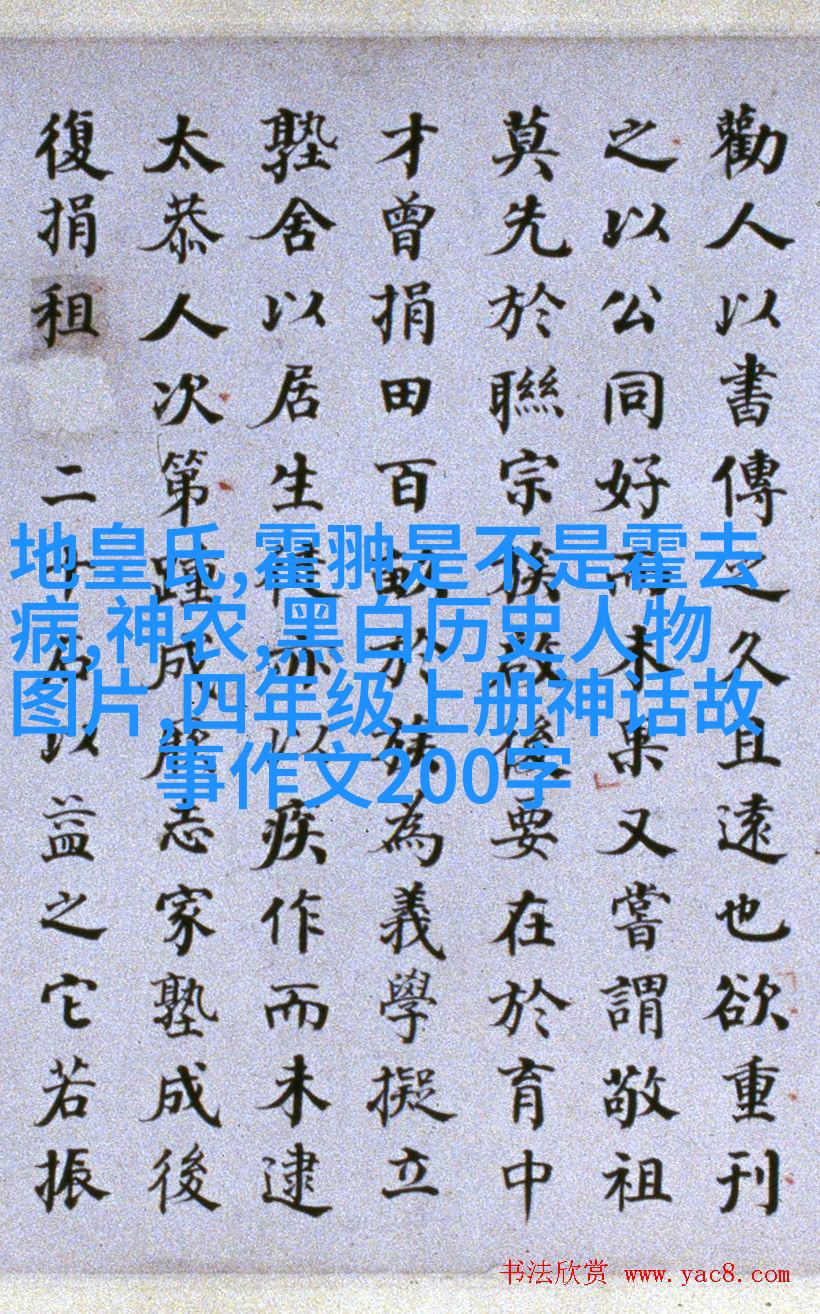 勸人以書傳之久且遠也欲重刊
之以公同好而未果又嘗謂敬祖
莫先於聯宗族故後要在於育中
才曾捐田百畝於族為義學擬立
塾舍以居生徒亦以疾作而未逮
太恭人次第踵成厥志家塾成後
復捐租二十石以益之它若振
地皇氏,霍翀是不是霍去
病,神农,黑白历史人物
图片,四年级上册神话故
事作文200字
书法欣赏 www.yac8.com